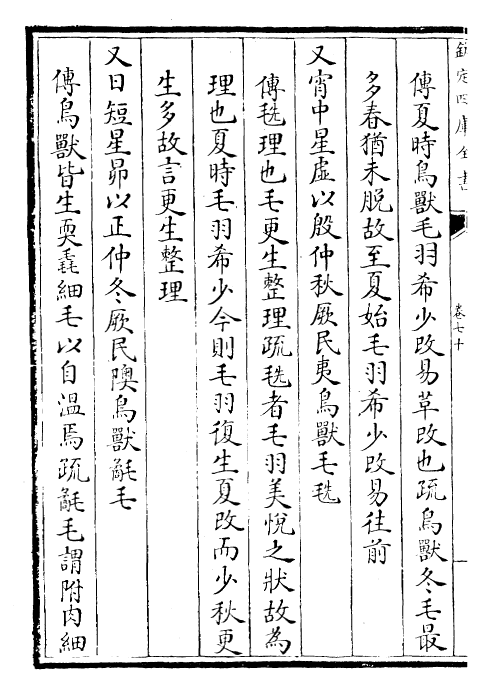 欽定四庫全書
卷七十
傳夏時鳥獸毛羽希少改易革改也疏鳥獸冬毛最
多春猶未脫故至夏始毛羽希少改易往前
又宵中星虛以殷仲秋厥民夷鳥獸毛毨
傳毨理也毛更生整理疏毨者毛羽美悅之狀故為
理也夏時毛羽希少今則毛羽復生夏改而少秋更
生多故言更生整理
又日短星昴以正仲冬厥民隩鳥獸氄毛
傳鳥獸皆生耎毳細毛以自溫焉疏氄毛謂附肉細